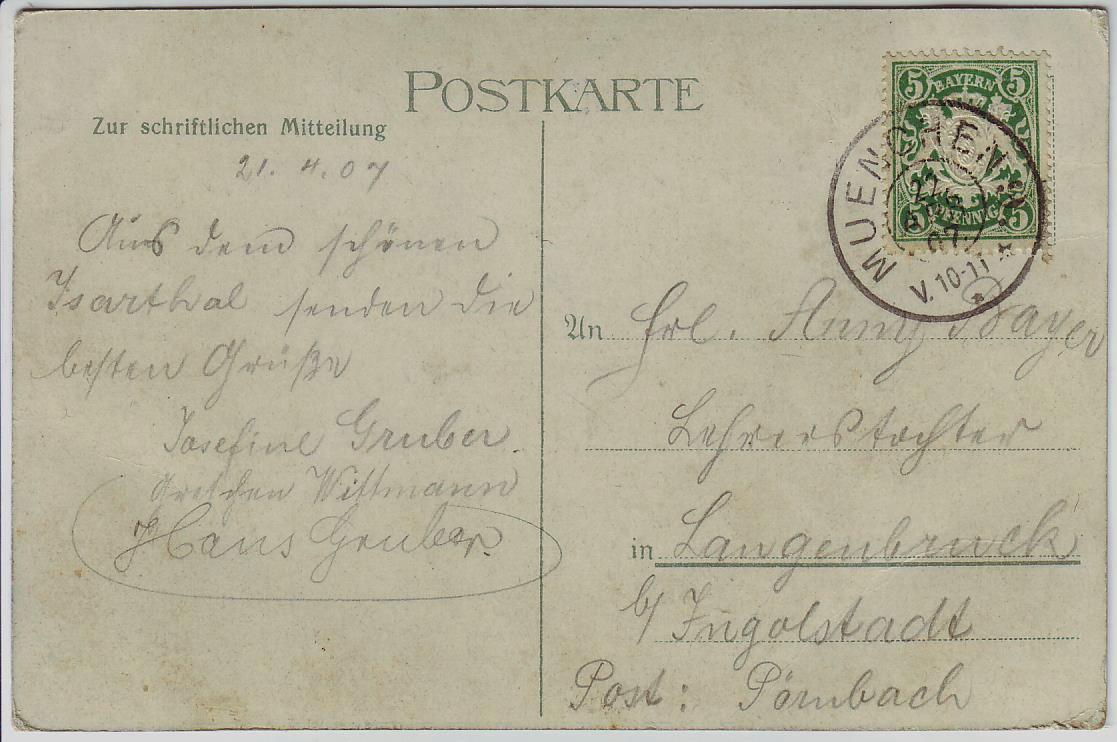 POSTKARTE
Zur schriftlichen Mitteilung
21. 4. 07
Aus dem schönen
Isarthal senden die
besten Grüße
Josefine Gruber.
Gretchen Wittmann
Hans Gruber.
5 BAYERN 5
5 PFENNIG 5
MUENCHEN
V. 10-11
An Frl. Anny Bayer
Lehrerstochter
in Langenbruck
b/ Ingolstadt
Post: Pörnbach